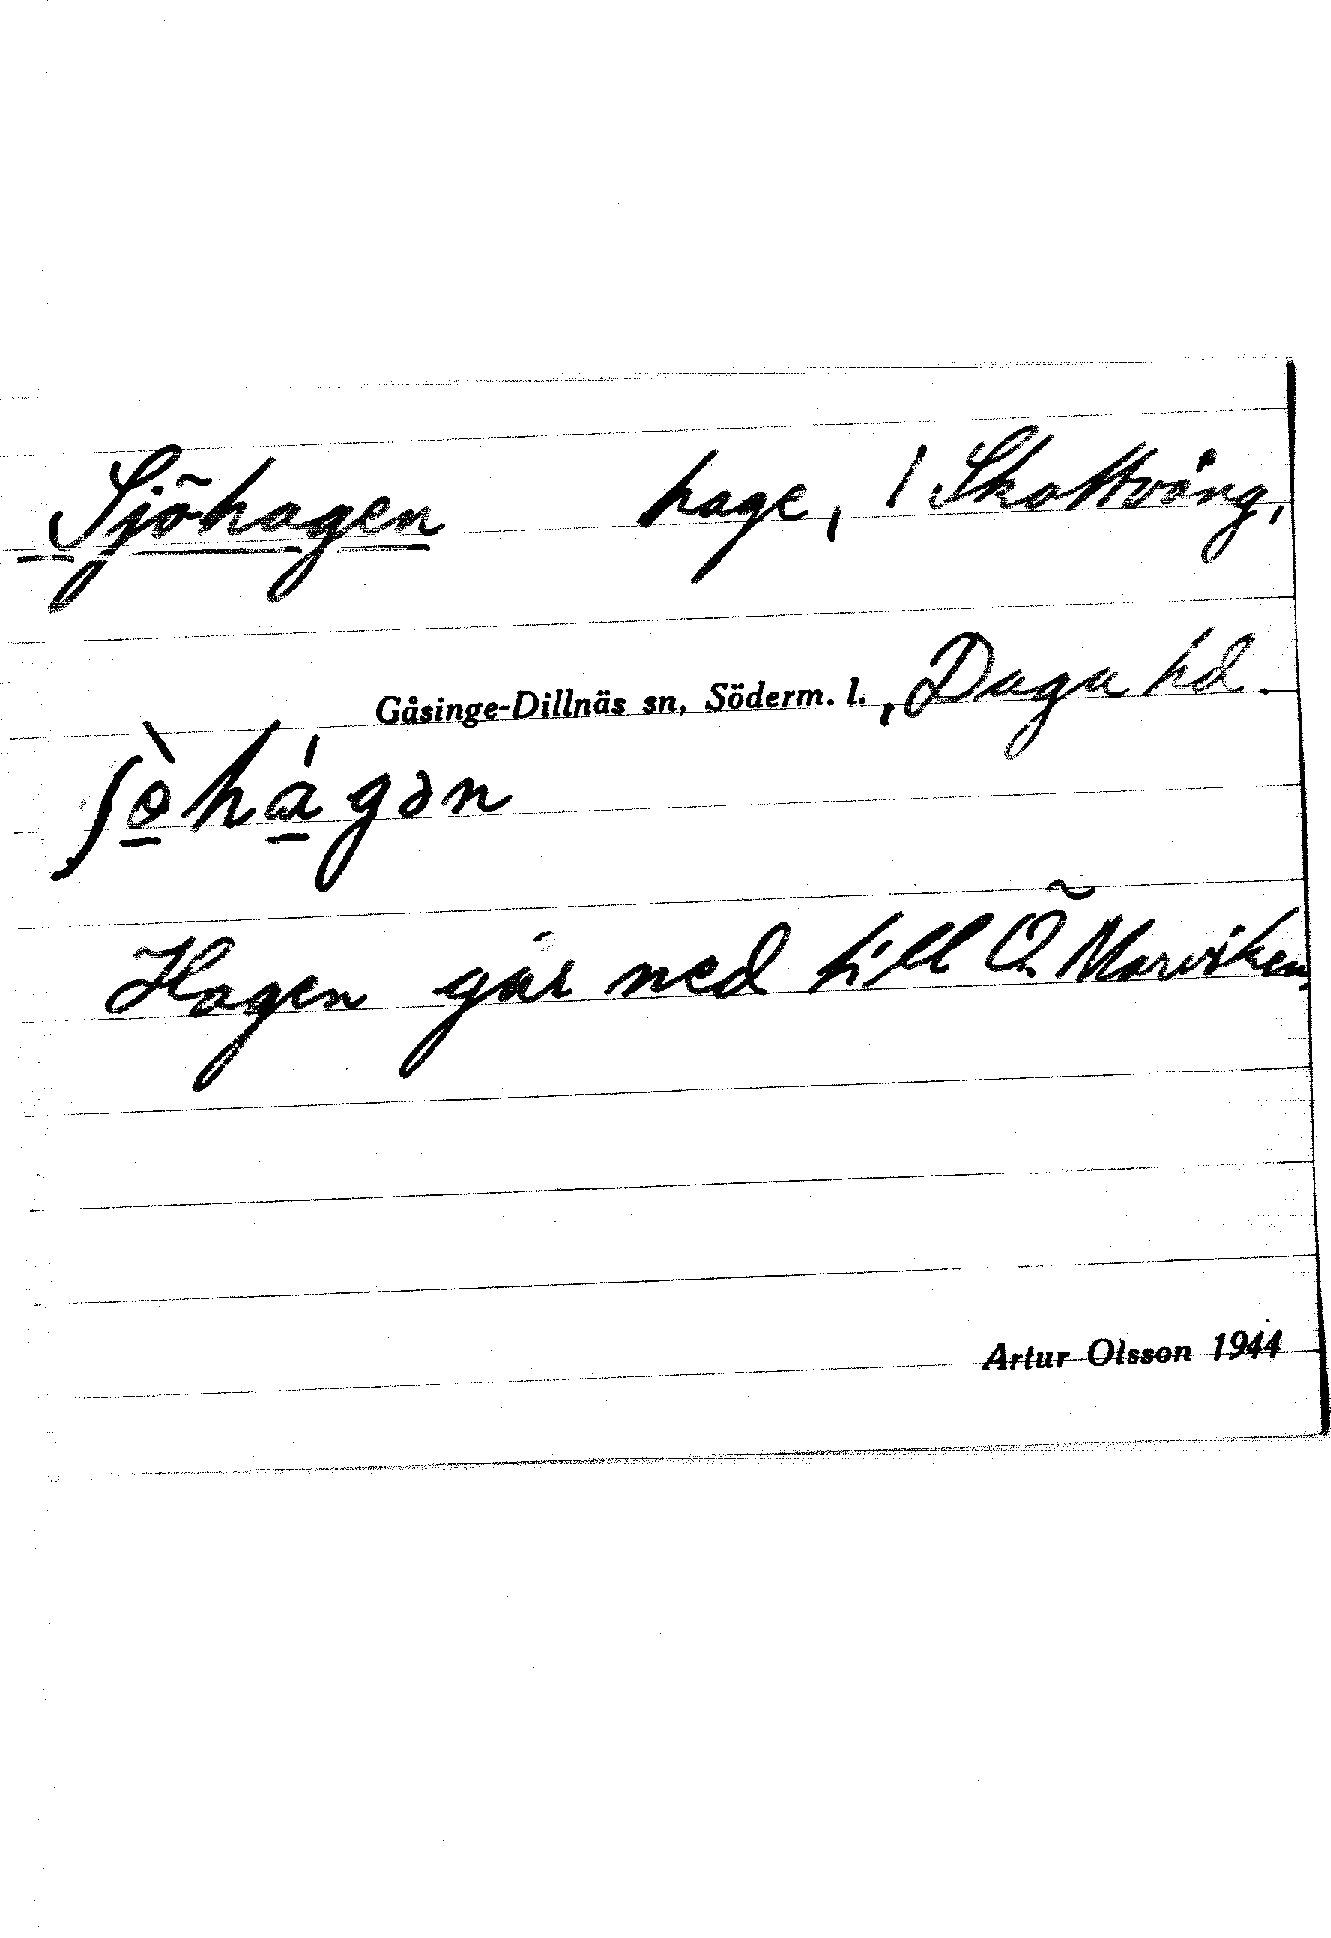 Sjöhagen hage, 1 Skottvång,
Gåsinge-Dillnäs sn, Söderm. l., Daga hd.
ʃø̀hágən
Hagen går ned till Ö Marviken,
Artur Olsson 1944